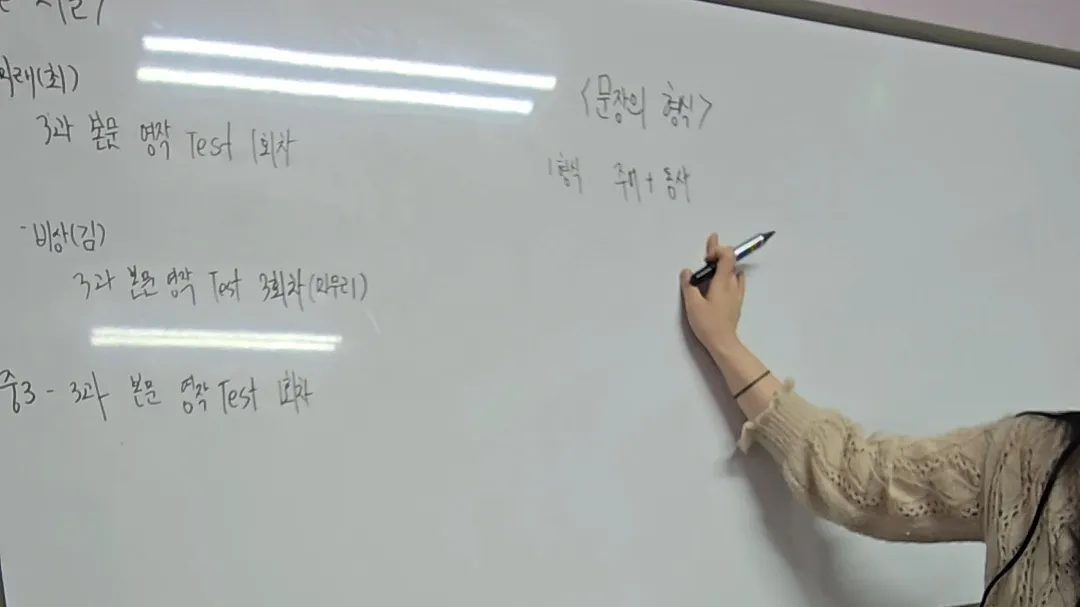 미래(최)
3과 본문 영작 Test 1회차
- 비상(김)
3과 본문 영작 Test 3회차(마무리)
중3 - 3과 본문 영작 Test 1회차
<문장의 형식>
1형식 주어 + 동사